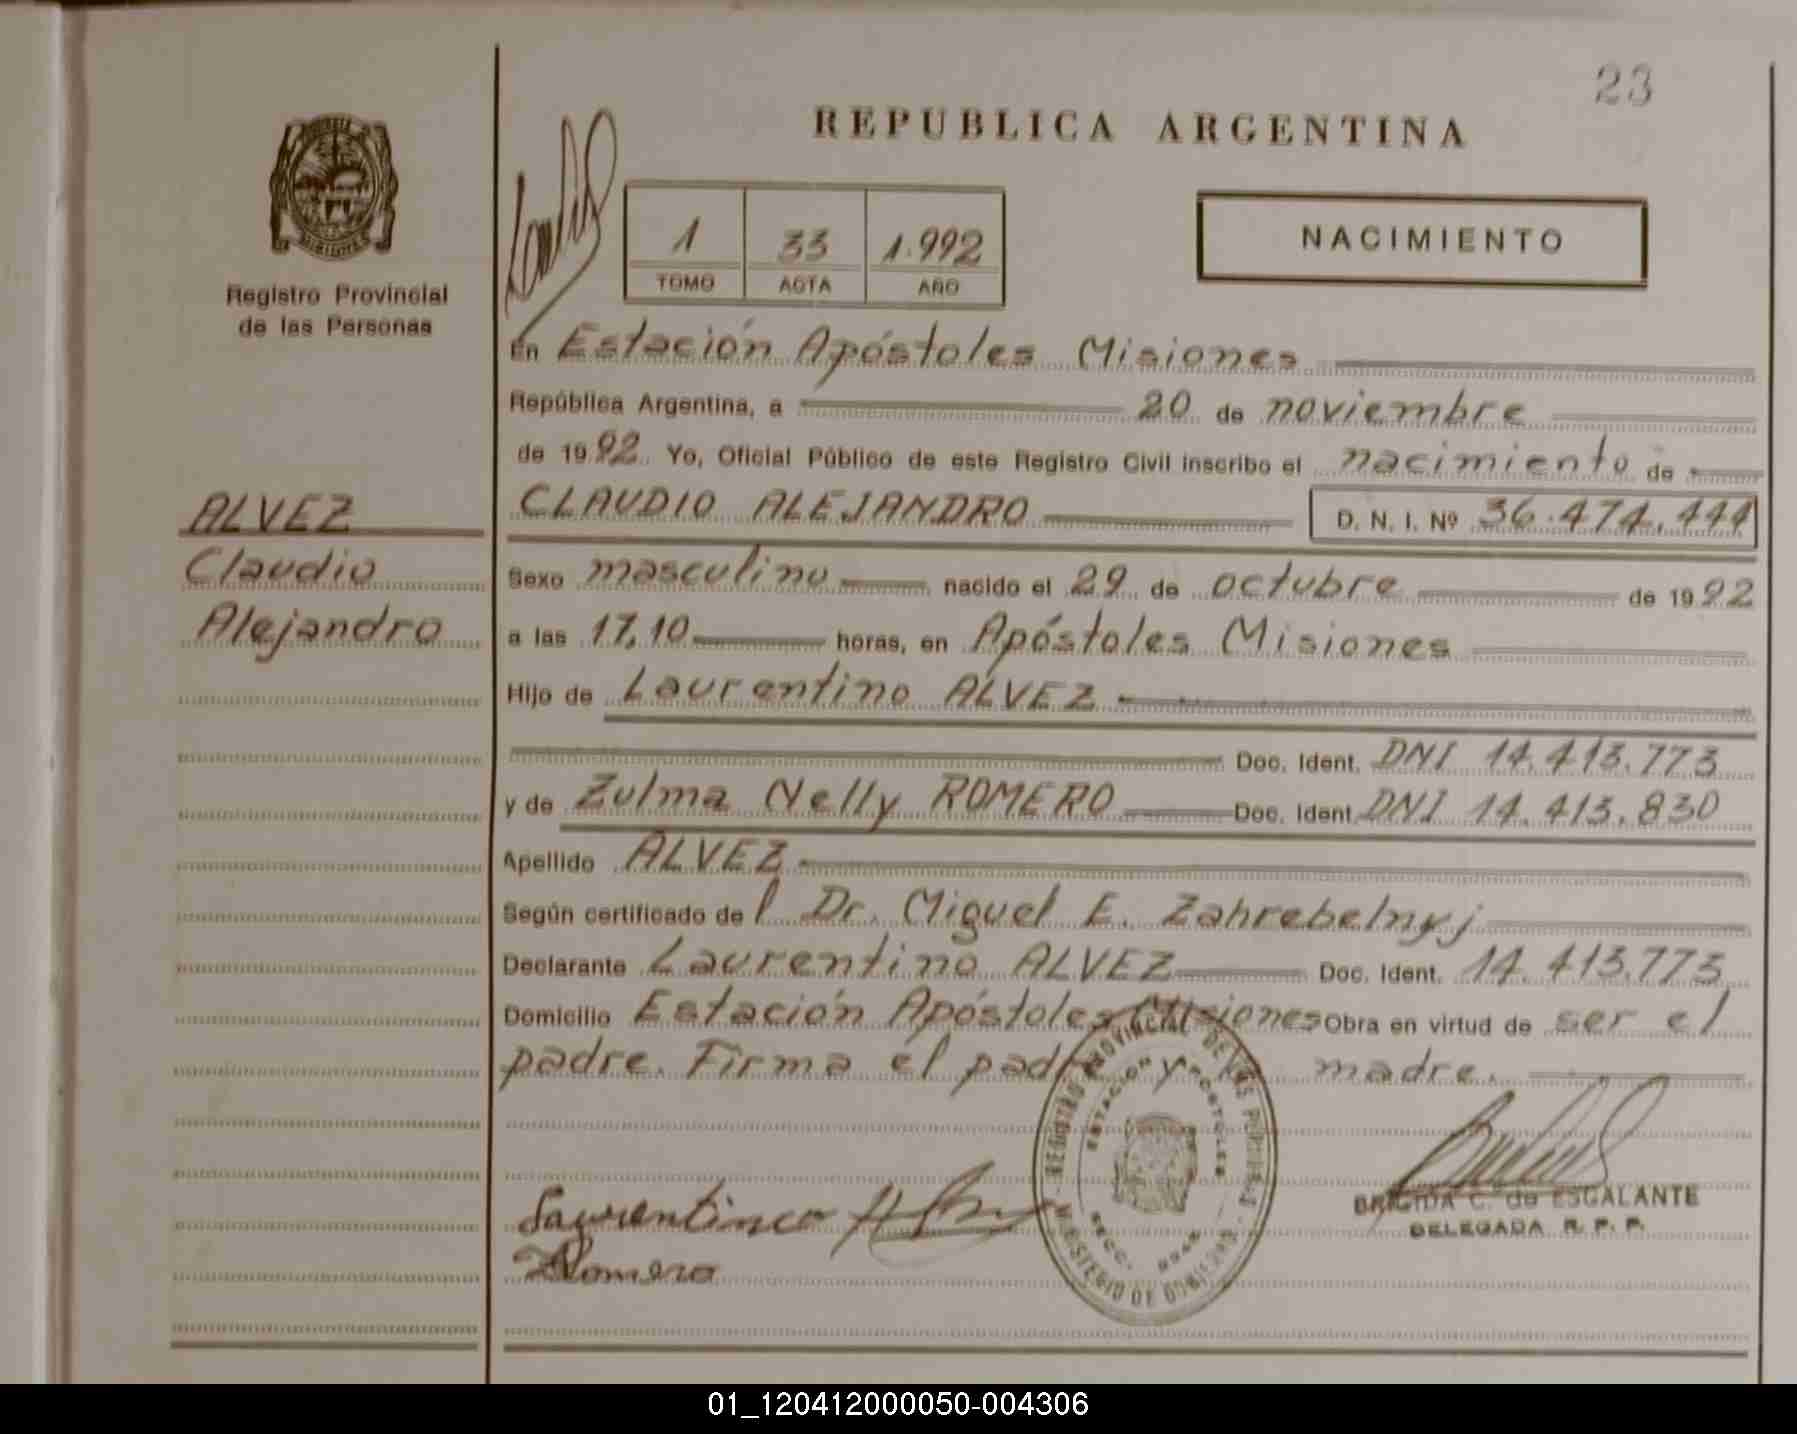 23
REPUBLICA ARGENTINA
1 33 1.992
TOMO ACTA AÑO
NACIMIENTO
Registro Provincial
de las Personas
ALVEZ
Claudio
Alejandro
En Estación Apóstoles Misiones
República Argentina, a 20 de noviembre
de 1992 Yo, Oficial Público de este Registro Civil inscribo el nacimiento de
CLAUDIO ALEJANDRO D. N. I. Nº 36.474.444
Sexo masculino nacido el 29 de octubre de 1992
a las 17,10 horas, en Apóstoles Misiones
Hijo de Laurentino ALVEZ
Doc. Ident. DNI 14.413.773
y de Zulma Nelly ROMERO Doc. Ident. DNI 14.413.830
Apellido ALVEZ
Según certificado del Dr. Miguel E. Zahrebelnyj
Declarante Laurentino ALVEZ Doc. Ident. 14.413.773
Domicilio Estación Apóstoles Misiones Obra en virtud de ser el
padre. Firma el padre y la madre.
REGISTRO PROVINCIAL DE LAS PERSONAS
ESTACION APOSTOLES
MINISTERIO DE GOBIERNO
BRIGIDA C. de ESCALANTE
DELEGADA R. P. P.
Laurentino
Romero
01_120412000050-004306